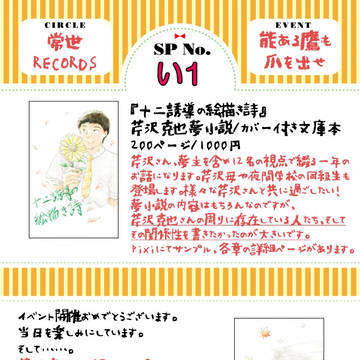 CIRCLE
常世
RECORDS
SP No.
い1
EVENT
能ある鷹も
爪を出せ
『十二誘導の絵描き詩』
芹沢克也夢小説/カバー付き文庫本
200ページ/1000円
芹沢さん、夢主を含め12名の視点で綴る一年の
お話になります。芹沢母や夜間学校の同級生も
登場します。様々な芹沢さんと共に過ごしたい!
夢小説の内容はもちろんなのですが、
芹沢克也さんの周りに存在している人たち、そして
その関係性を書きたかったのが大きいです。
Pixivにてサンプル、各章の詳細ページがあります。
十二誘導の
絵描き詩
イベント開催おめでとうございます。
当日を楽しみにしています。
そして……。